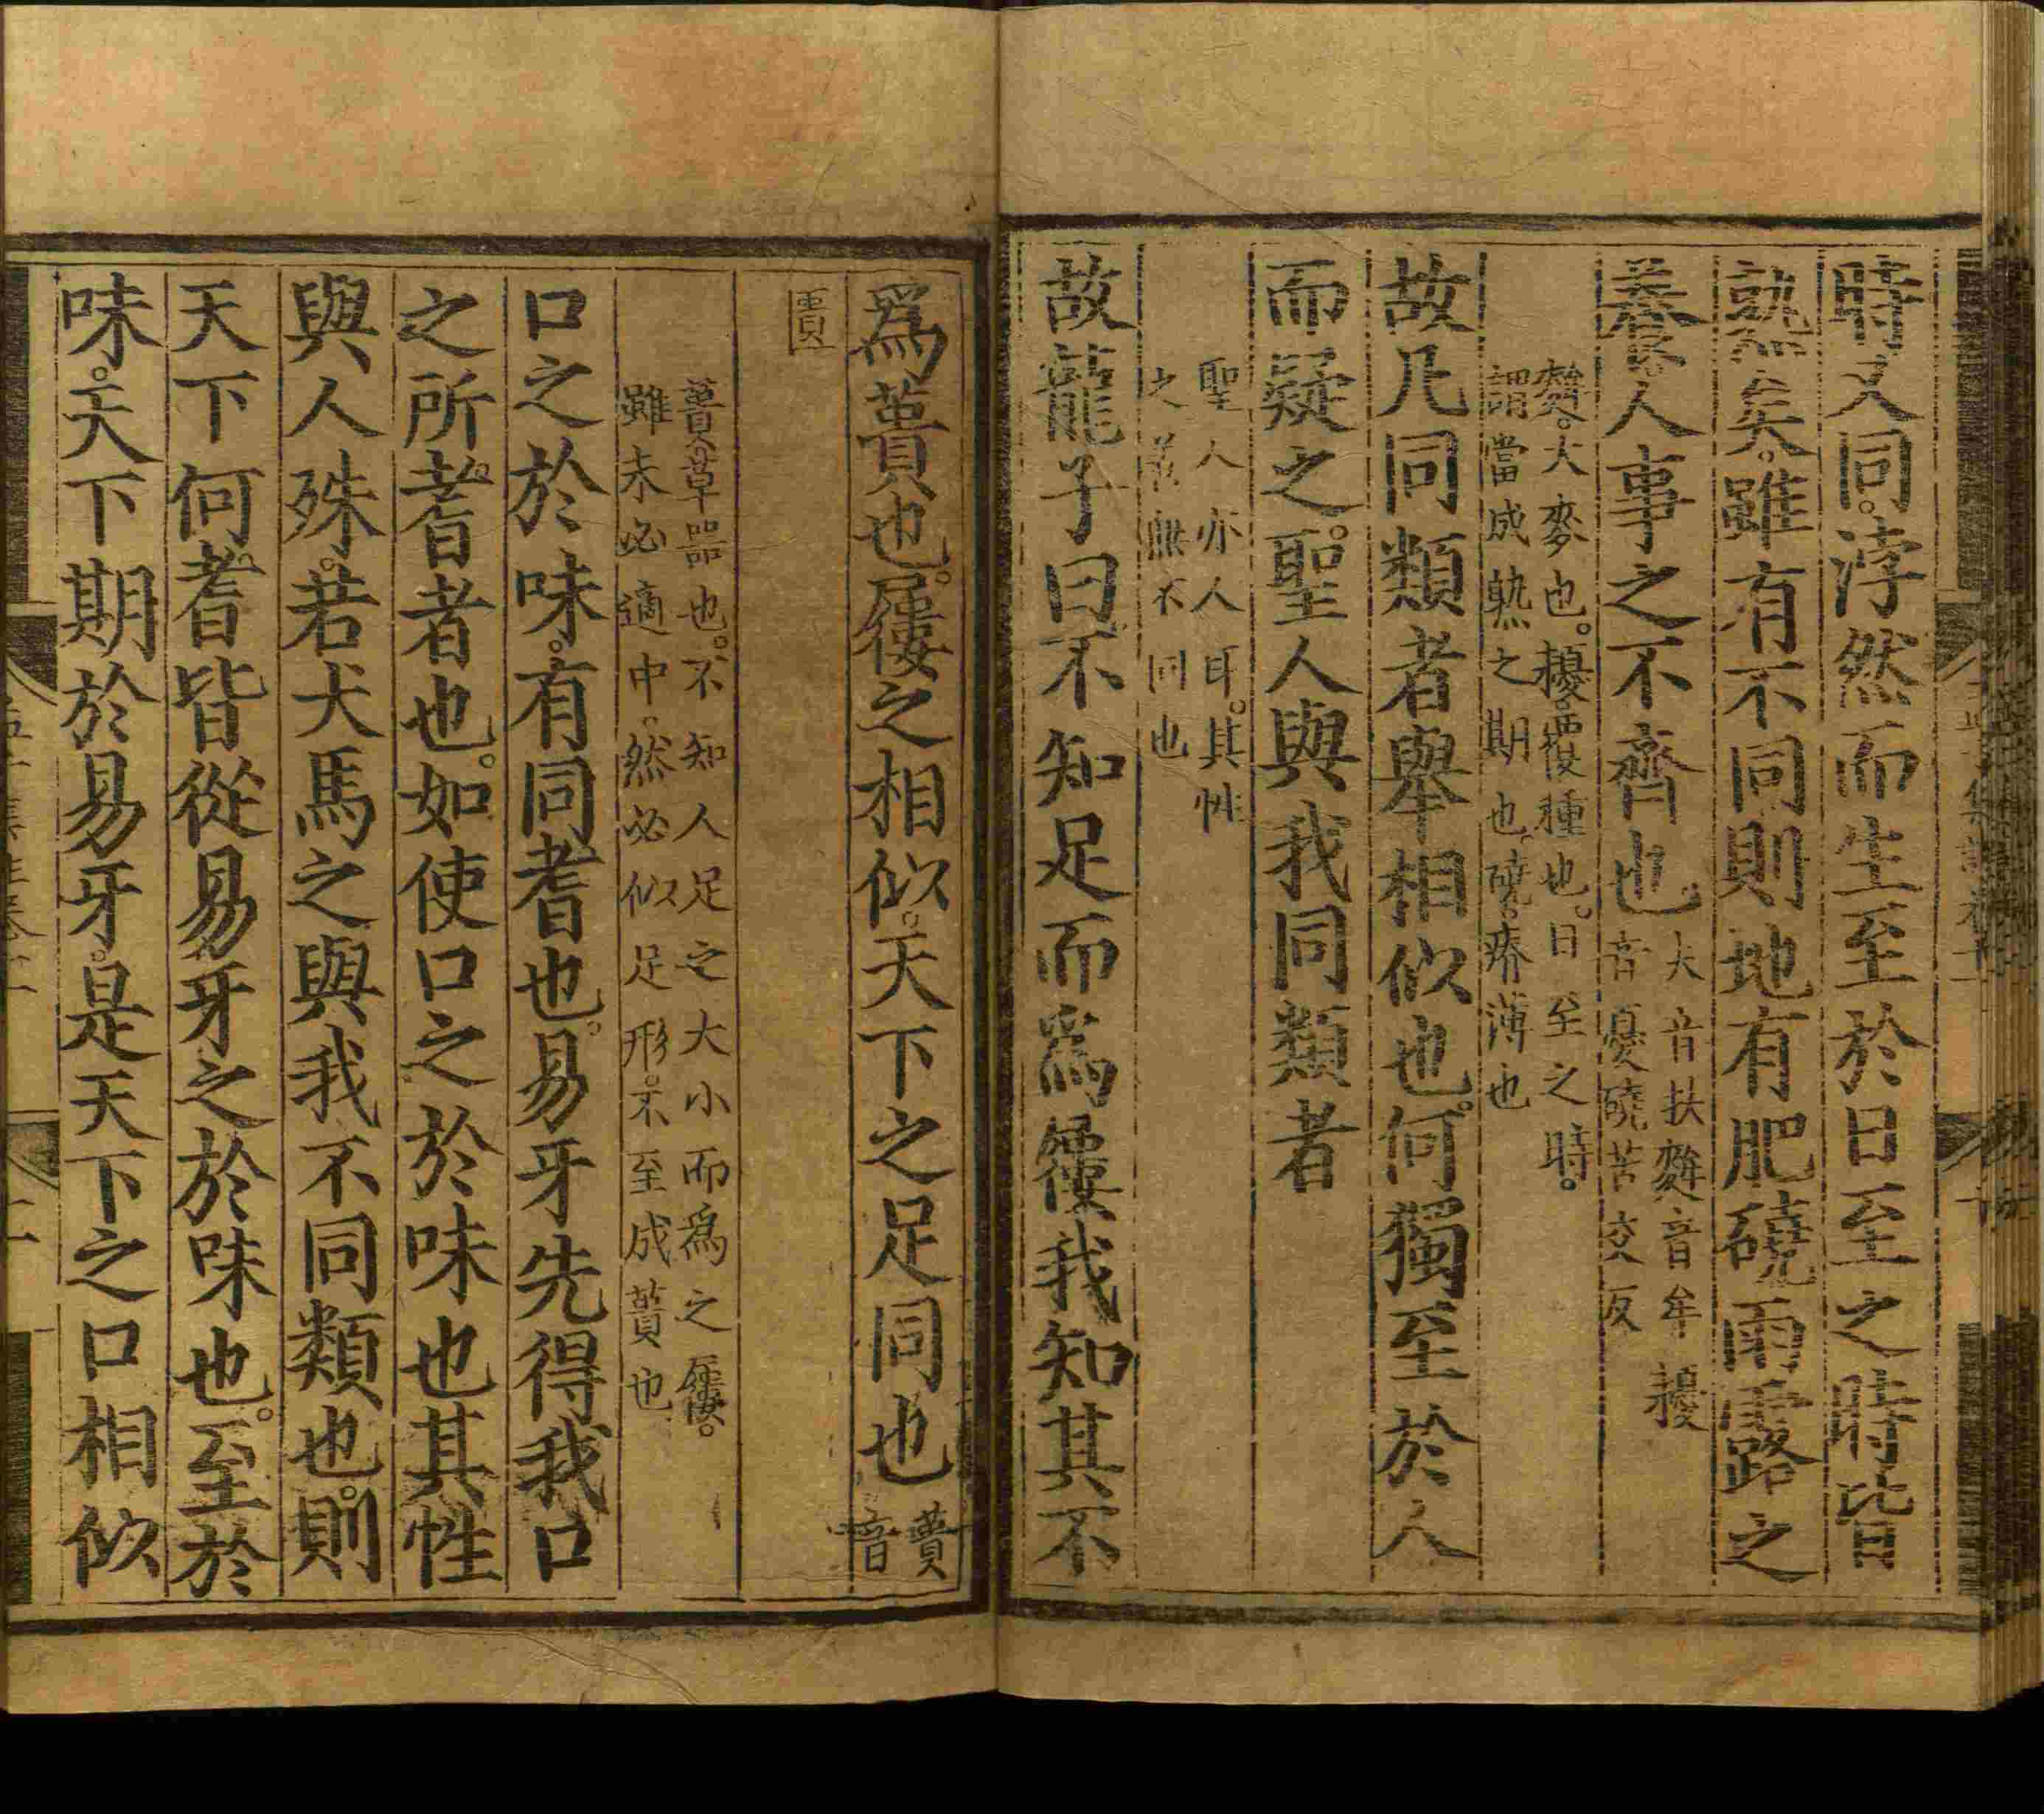 時又同浡然而生至於日至之時皆
熟矣雖有不同則地有肥磽雨露之
養人事之不齊也大音扶麰音牟耰
音憂磽苦交反
麰大麥也耰覆種也日至之時
謂當成熟之期也磽瘠薄也
故凡同類者舉相似也何獨至於人
而疑之聖人與我同類者
聖人亦人耳其性
之善無不同也
故龍子曰不知足而爲屨我知其不
爲蕢也屨之相似天下之足同也蕢
音
匱
蕢草器也不知人足之大小而爲之屨
雖未必適中然必似足形不至成蕢也
口之於味有同耆也易牙先得我口
之所耆者也如使口之於味也其性
與人殊若犬馬之與我不同類也則
天下何耆皆從易牙之於味也至於
味天下期於易牙是天下之口相似